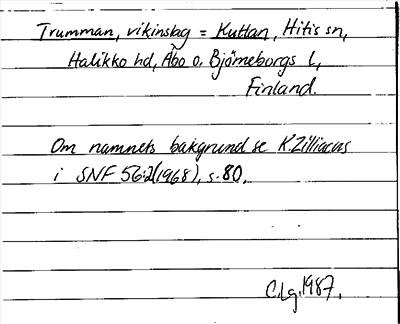 Trumman, vikinslag = Kuttan, Hitis sn,
Halikko hd, Åbo o. Björneborgs l,
Finland.
Om namnets bakgrund se K. Zilliacus
i SNF 56:2 (1968), s. 80.
C. Lg. 1987.